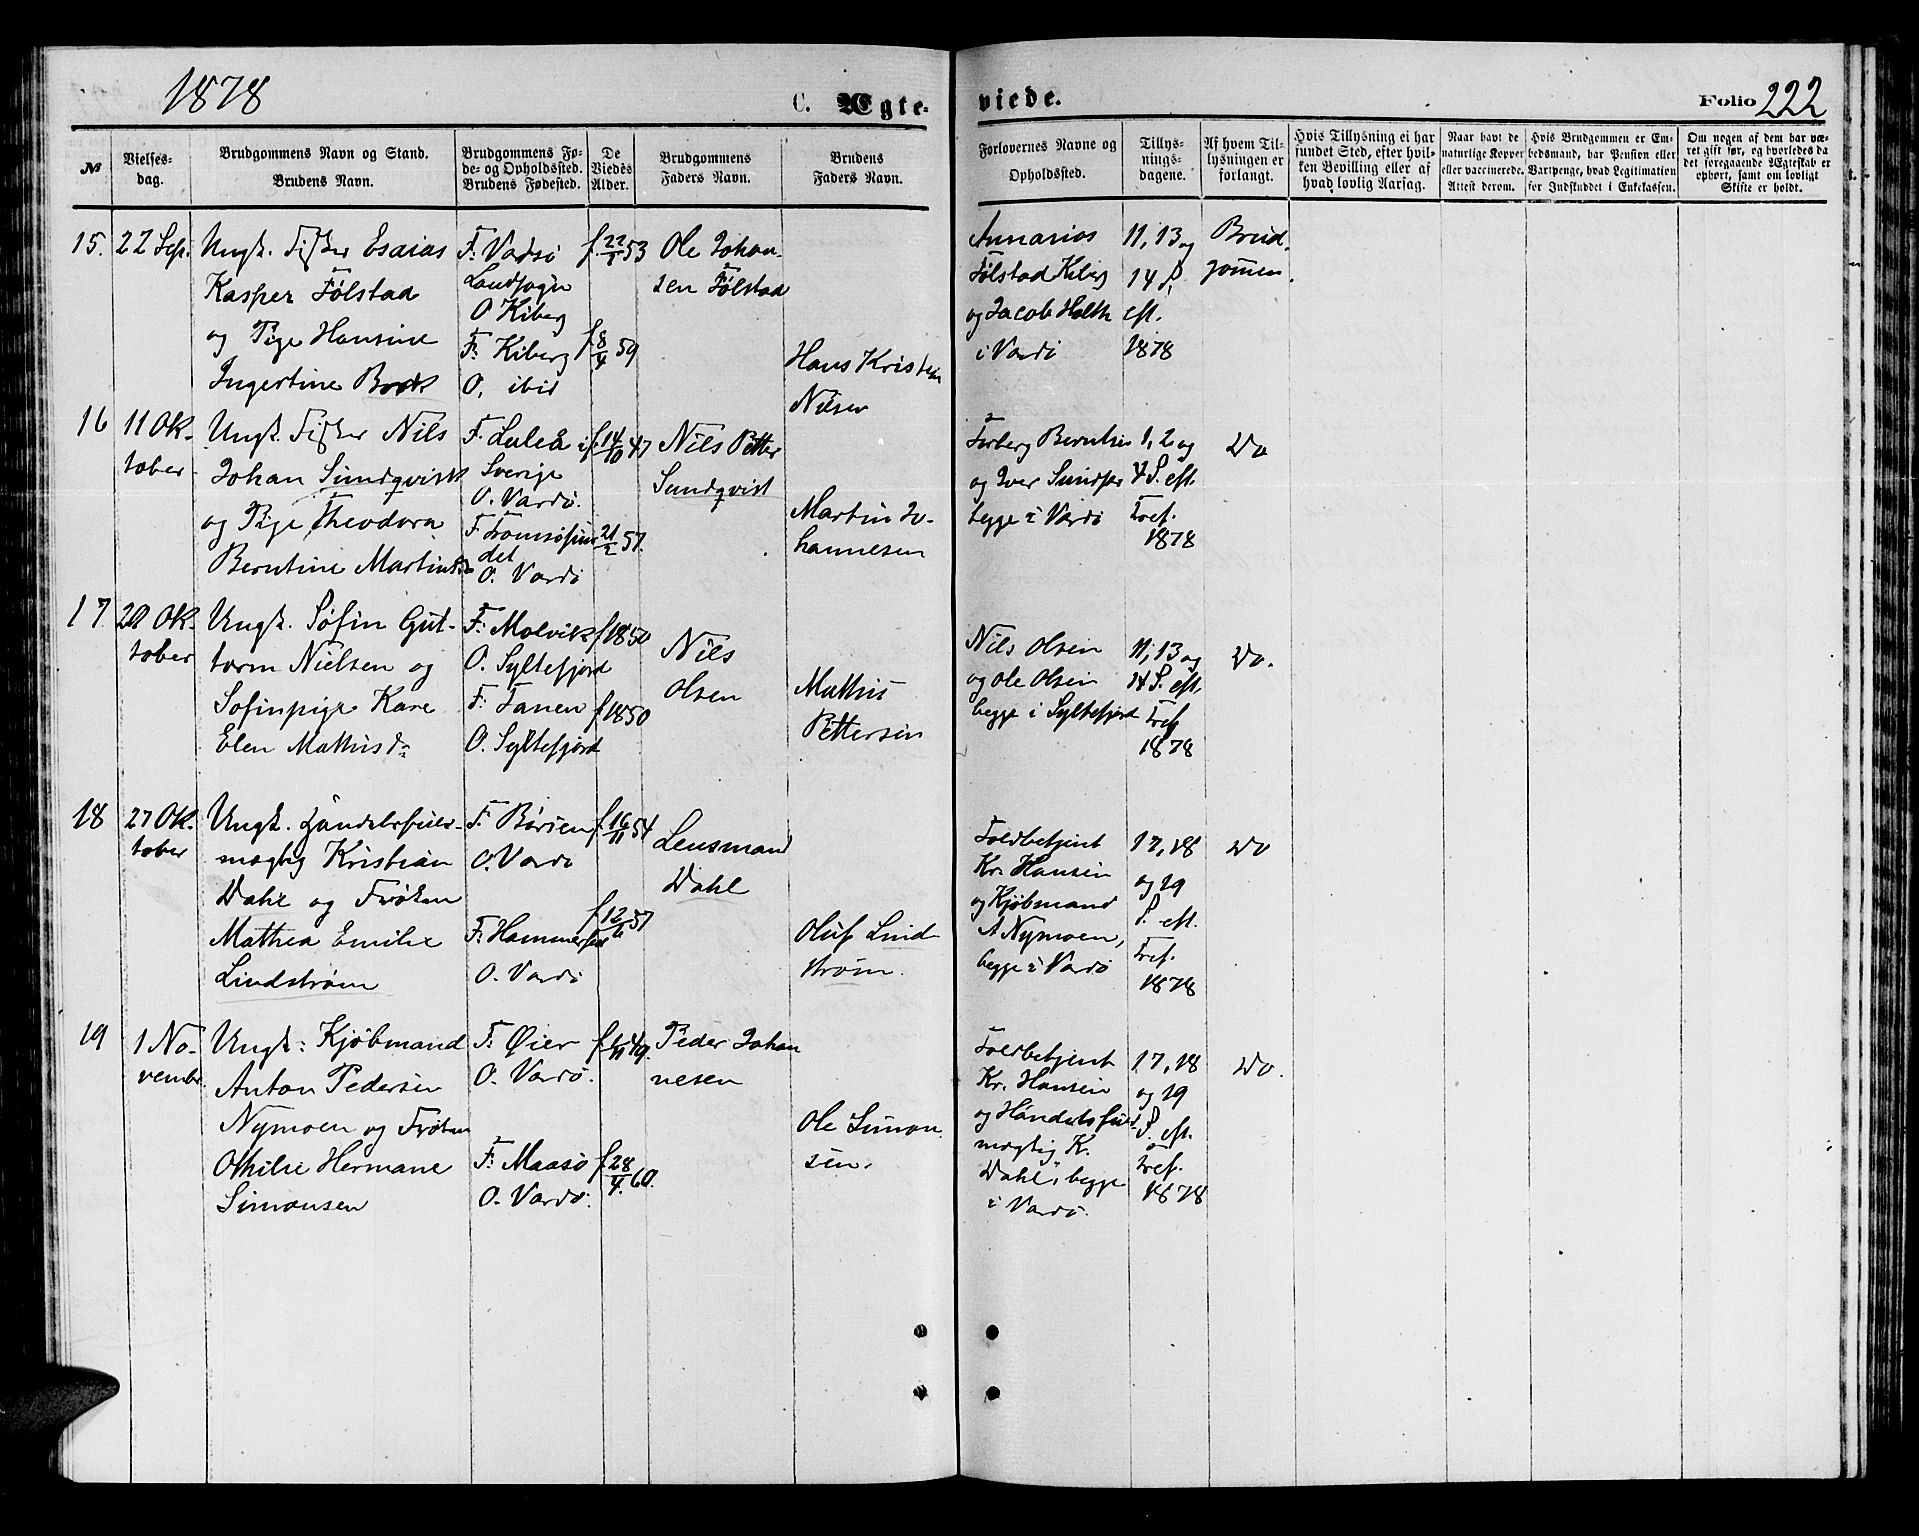 1878
C. Ægte-
viede.
Folio 222
№
Vielses-
dag.
Brudgommens Navn og Stand.
Brudens Navn.
Brudgommens Fø-
de- og Opholdssted.
Brudens Fødested.
De
Viedes
Alder.
Brudgommens
Faders Navn.
Brudens
Faders Navn.
Forlovernes Navne og
Opholdssted.
Tillys-
nings-
dagene.
Af hvem Til-
lysningen er
forlangt.
Hvis Tillysning ei har
fundet Sted, efter hvil-
ken Bevilling eller af
hvad lovlig Aarsag.
Naar havt de
naturlige Kopper
eller vaccinerede.
Attest derom.
Hvis Brudgommen er Em-
bedsmand, har Pension eller
Vartpenge, hvad Legitimation
for Indskuddet i Enkekassen.
Om nogen af dem har væ-
ret gift før, og hvorledes da
det foregaaende Ægteskab er
ophørt, samt om lovligt
Skifte er holdt.
15.
22 Sep.
Ungk. Fisker Esaias
Kasper Følstad
og Pige Hansine
Ingertine Brock
F. Vadsø
Landsogn
O Kiberg
F: Kiberg
O, ibid
f. 22/1 53
f. 8/4 59
Ole Johan-
sen Følstad
Hans Kristen
Nilsen
Følstad Kiberg
og Jacob Holth
i Vardø
11, 13 og
14 S.
eft.
1878
Brud-
gommen.
16
11 Ok-
tober
Ungk. Fisker Nils
Johan Sundqvist
og Pige Theodora
Berntine Martinsd.
F. Luleå i
Sverige
O. Vardø.
F. Tromsøsun
det
O. Vardø
f. 14/10 47
21/2 57.
Nils Petter
Sundqvist
Martin Jo-
hannesen
og Iver Sundfær
begge i Vardø
1, 2 og
4 S. eft.
Tref.
1878
Do
17.
20 Ok-
tober
Ungk. Søfin Gut-
torm Nielsen og
Søfinpige Kare
Elen Mathisd.
F: Molvik
O. Syltefjord
F: Tanen
O. Syltefjord
f 1850
f 1850
Nils
Olsen
Mathis
Pettersen
Nils Olsen
og Ole Olsen
begge i Syltefjord
11, 13 og
14 S. eft.
Tref
1878
Do.
18
27 Ok-
tober
Ungk. Handelsfuld-
mægtig Kristian
Dahl og Frøken
Mathea Emilie
Lindstrøm
F. Børsen
O. Vardø
F. Hammerfest
O. Vardø
f. 16/11 54
f. 12/6 57
Lensmand
Dahl
Oluf Lind-
strøm.
Toldbetjent
Kr. Hansen
og Kjøbmand
A Nymoen,
begge i Vardø
17, 18
og 19
S. eft.
Tref.
1878
Do
19
1 No-
vembr.
Ungk: Kjøbmand
Anton Pedersen
Nymoen og Frøken
Othilie Hermane
Simonsen
F: Øier
O. Vardø.
F: Maasø
O. Vardø.
49.
f. 28/4. 60.
Peder Johan
nesen
Ole Simon-
sen.
Toldbetjent
Kr. Hansen
og Handelsfuld-
mægtig K.
Dahl, begge
i Vardø.
17, 18
og 19
S. eft.
Tref.
1878
Do.